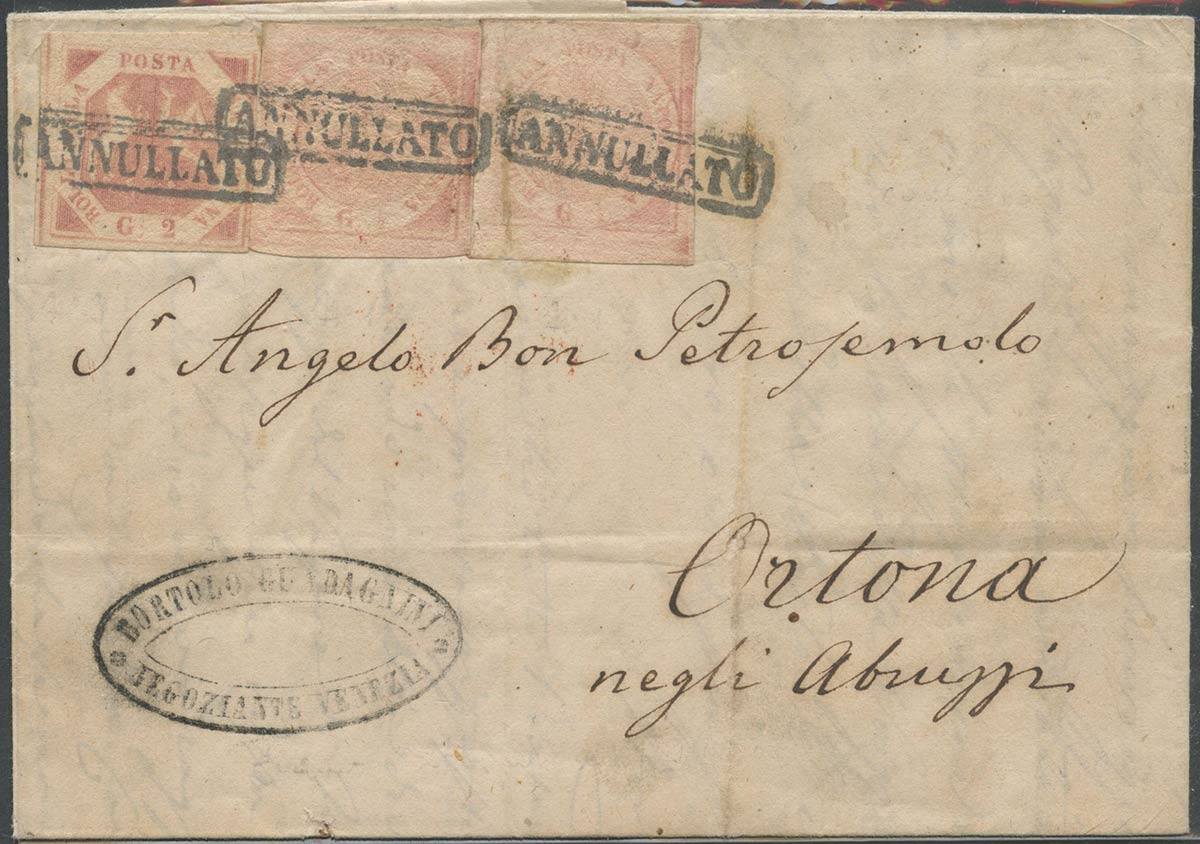 POSTA
G. 2
ANNULLATO
POSTA
G.
ANNULLATO
POSTA
G
ANNULLATO
Sr. Angelo Bon Petrosemolo
Ortona
negli Abruzzi
BORTOLO GUADAGNINI
NEGOZIANTE VENEZIA